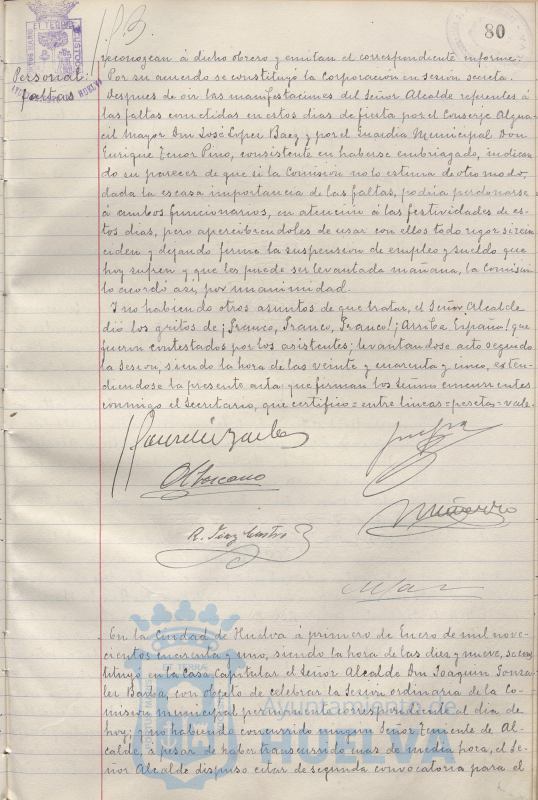 80
Personal:
faltas
reconozcan á dicho obrero y emitan el correspondiente informe.
Por su acuerdo se constituyó la Corporación en sesión secreta.
Después de oir las manifestaciones del Señor Alcalde referentes á
las faltas cometidas en estos dias de fiesta por el Conserje Algua-
cil Mayor Don José Lopez Baez y por el Guardia Municipal Don
Enrique Tenor Pino, consistente en haberse embriagado, indican-
do su parecer de que si la Comision no lo estima de otro modo,
dada la escasa importancia de las faltas, podria perdonarse
á ambos funcionarios, en atención á las festividades de es-
tos dias, pero apercibiendoles de usar con ellos todo rigor si rein-
ciden y dejando firme la suspension de empleo y sueldo que
hoy sufren y que les puede ser levantada mañana, la Comision
lo acordó así, por unanimidad.
Y no habiendo otros asuntos de que tratar, el Señor Alcalde
dió los gritos de ¡Franco, Franco, Franco! ¡Arriba España! que
fueron contestados por los asistentes; levantandose acto seguido
la Sesion, siendo la hora de las veinte y cuarenta y cinco, exten-
diendose la presente acta que firman los Señores concurrentes
conmigo el Secretario, que certifico = entre lineas = pesetas = vale.
R. Diaz Castro
En la Ciudad de Huelva á primero de Enero de mil nove-
cientos cincuenta y uno, siendo la hora de las diez y nueve, se cons-
tituyó en la Casa Capitular el Señor Alcalde Don Joaquin Gonza-
lez Barba, con objeto de celebrar la Sesion ordinaria de la Co-
mision municipal permanente correspondiente al dia de
hoy; y no habiendo concurrido ningun Señor Teniente de Al-
calde, á pesar de haber transcurrido mas de media hora, el Se-
ñor Alcalde dispuso citar de segunda convocatoria para el
Ayuntamiento de
HUELVA